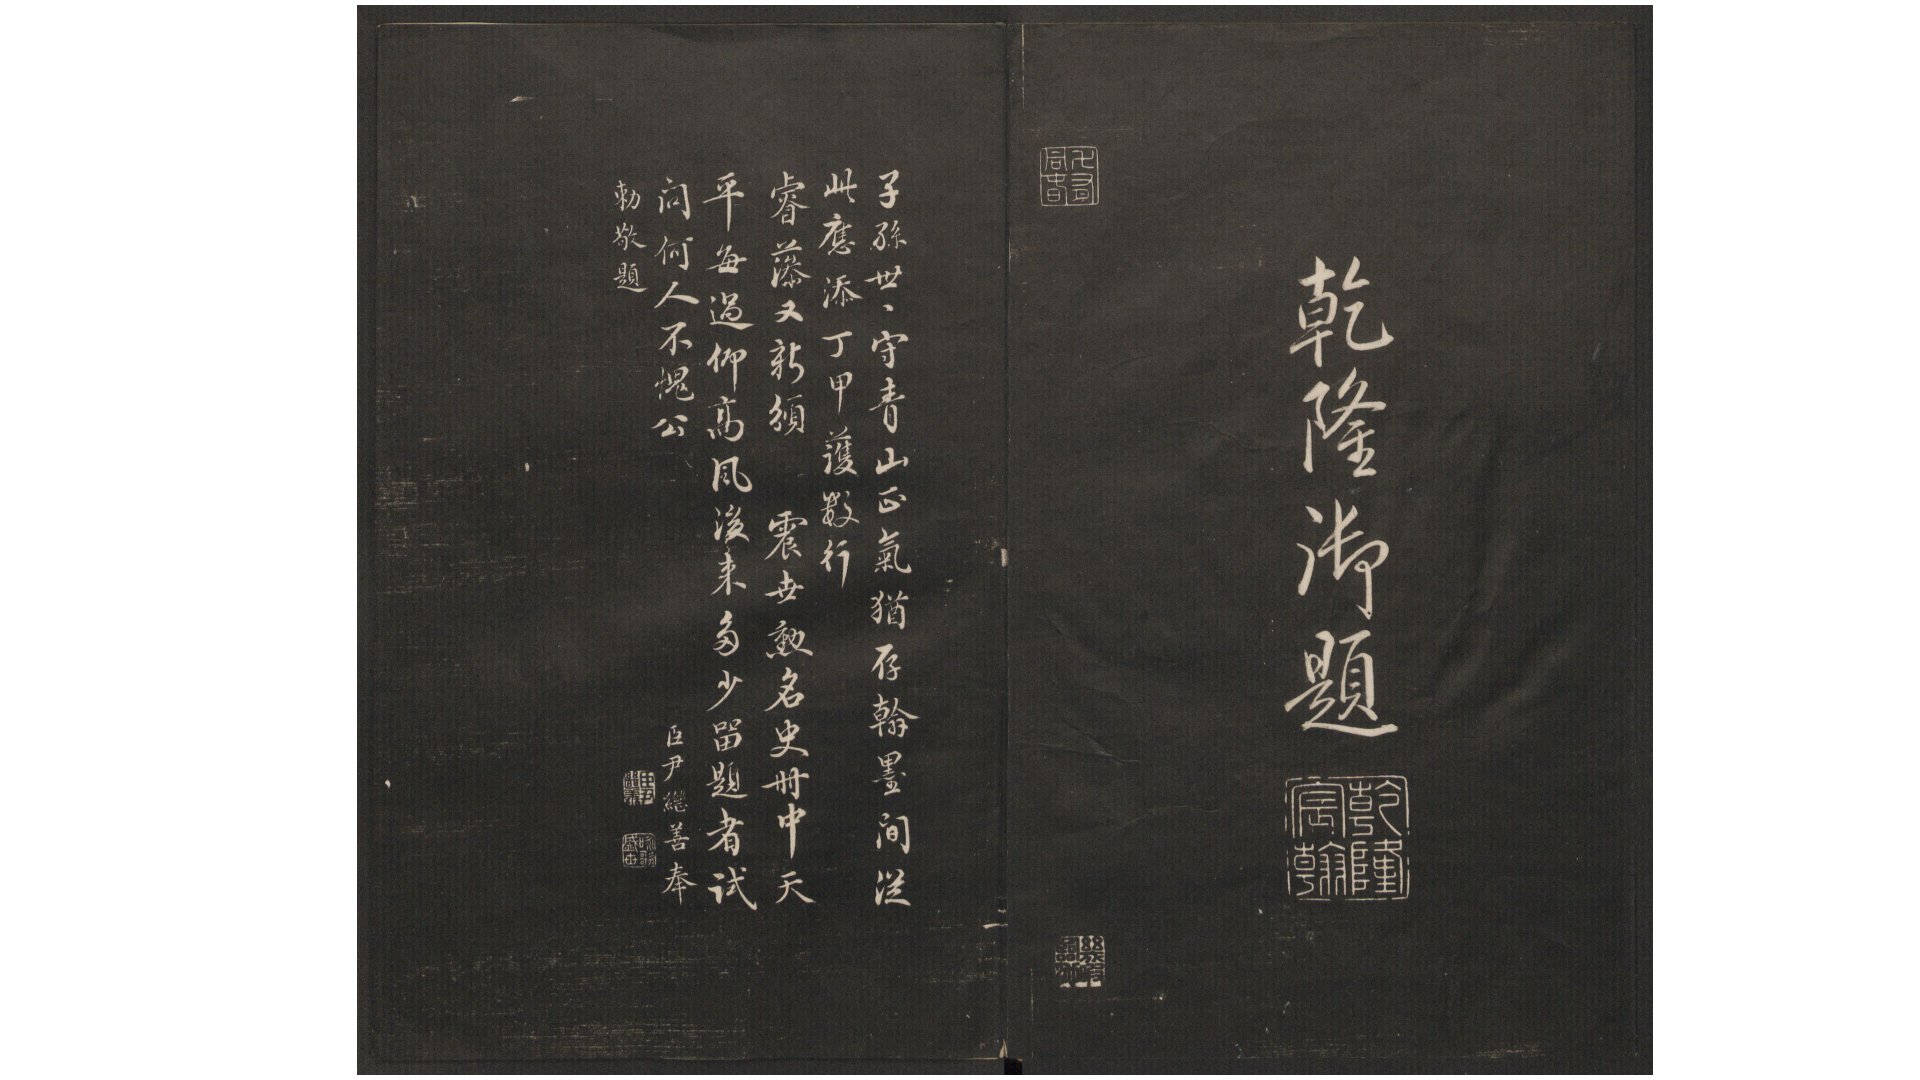 乾隆御題
乾隆宸翰
子孫世〻守青山正氣猶存翰墨間從
此應添丁甲護數行
睿藻又新頒 震世勳名史冊中天
平每過仰高風後來多少留題者試
問何人不愧公 臣尹繼善奉
勅敬題